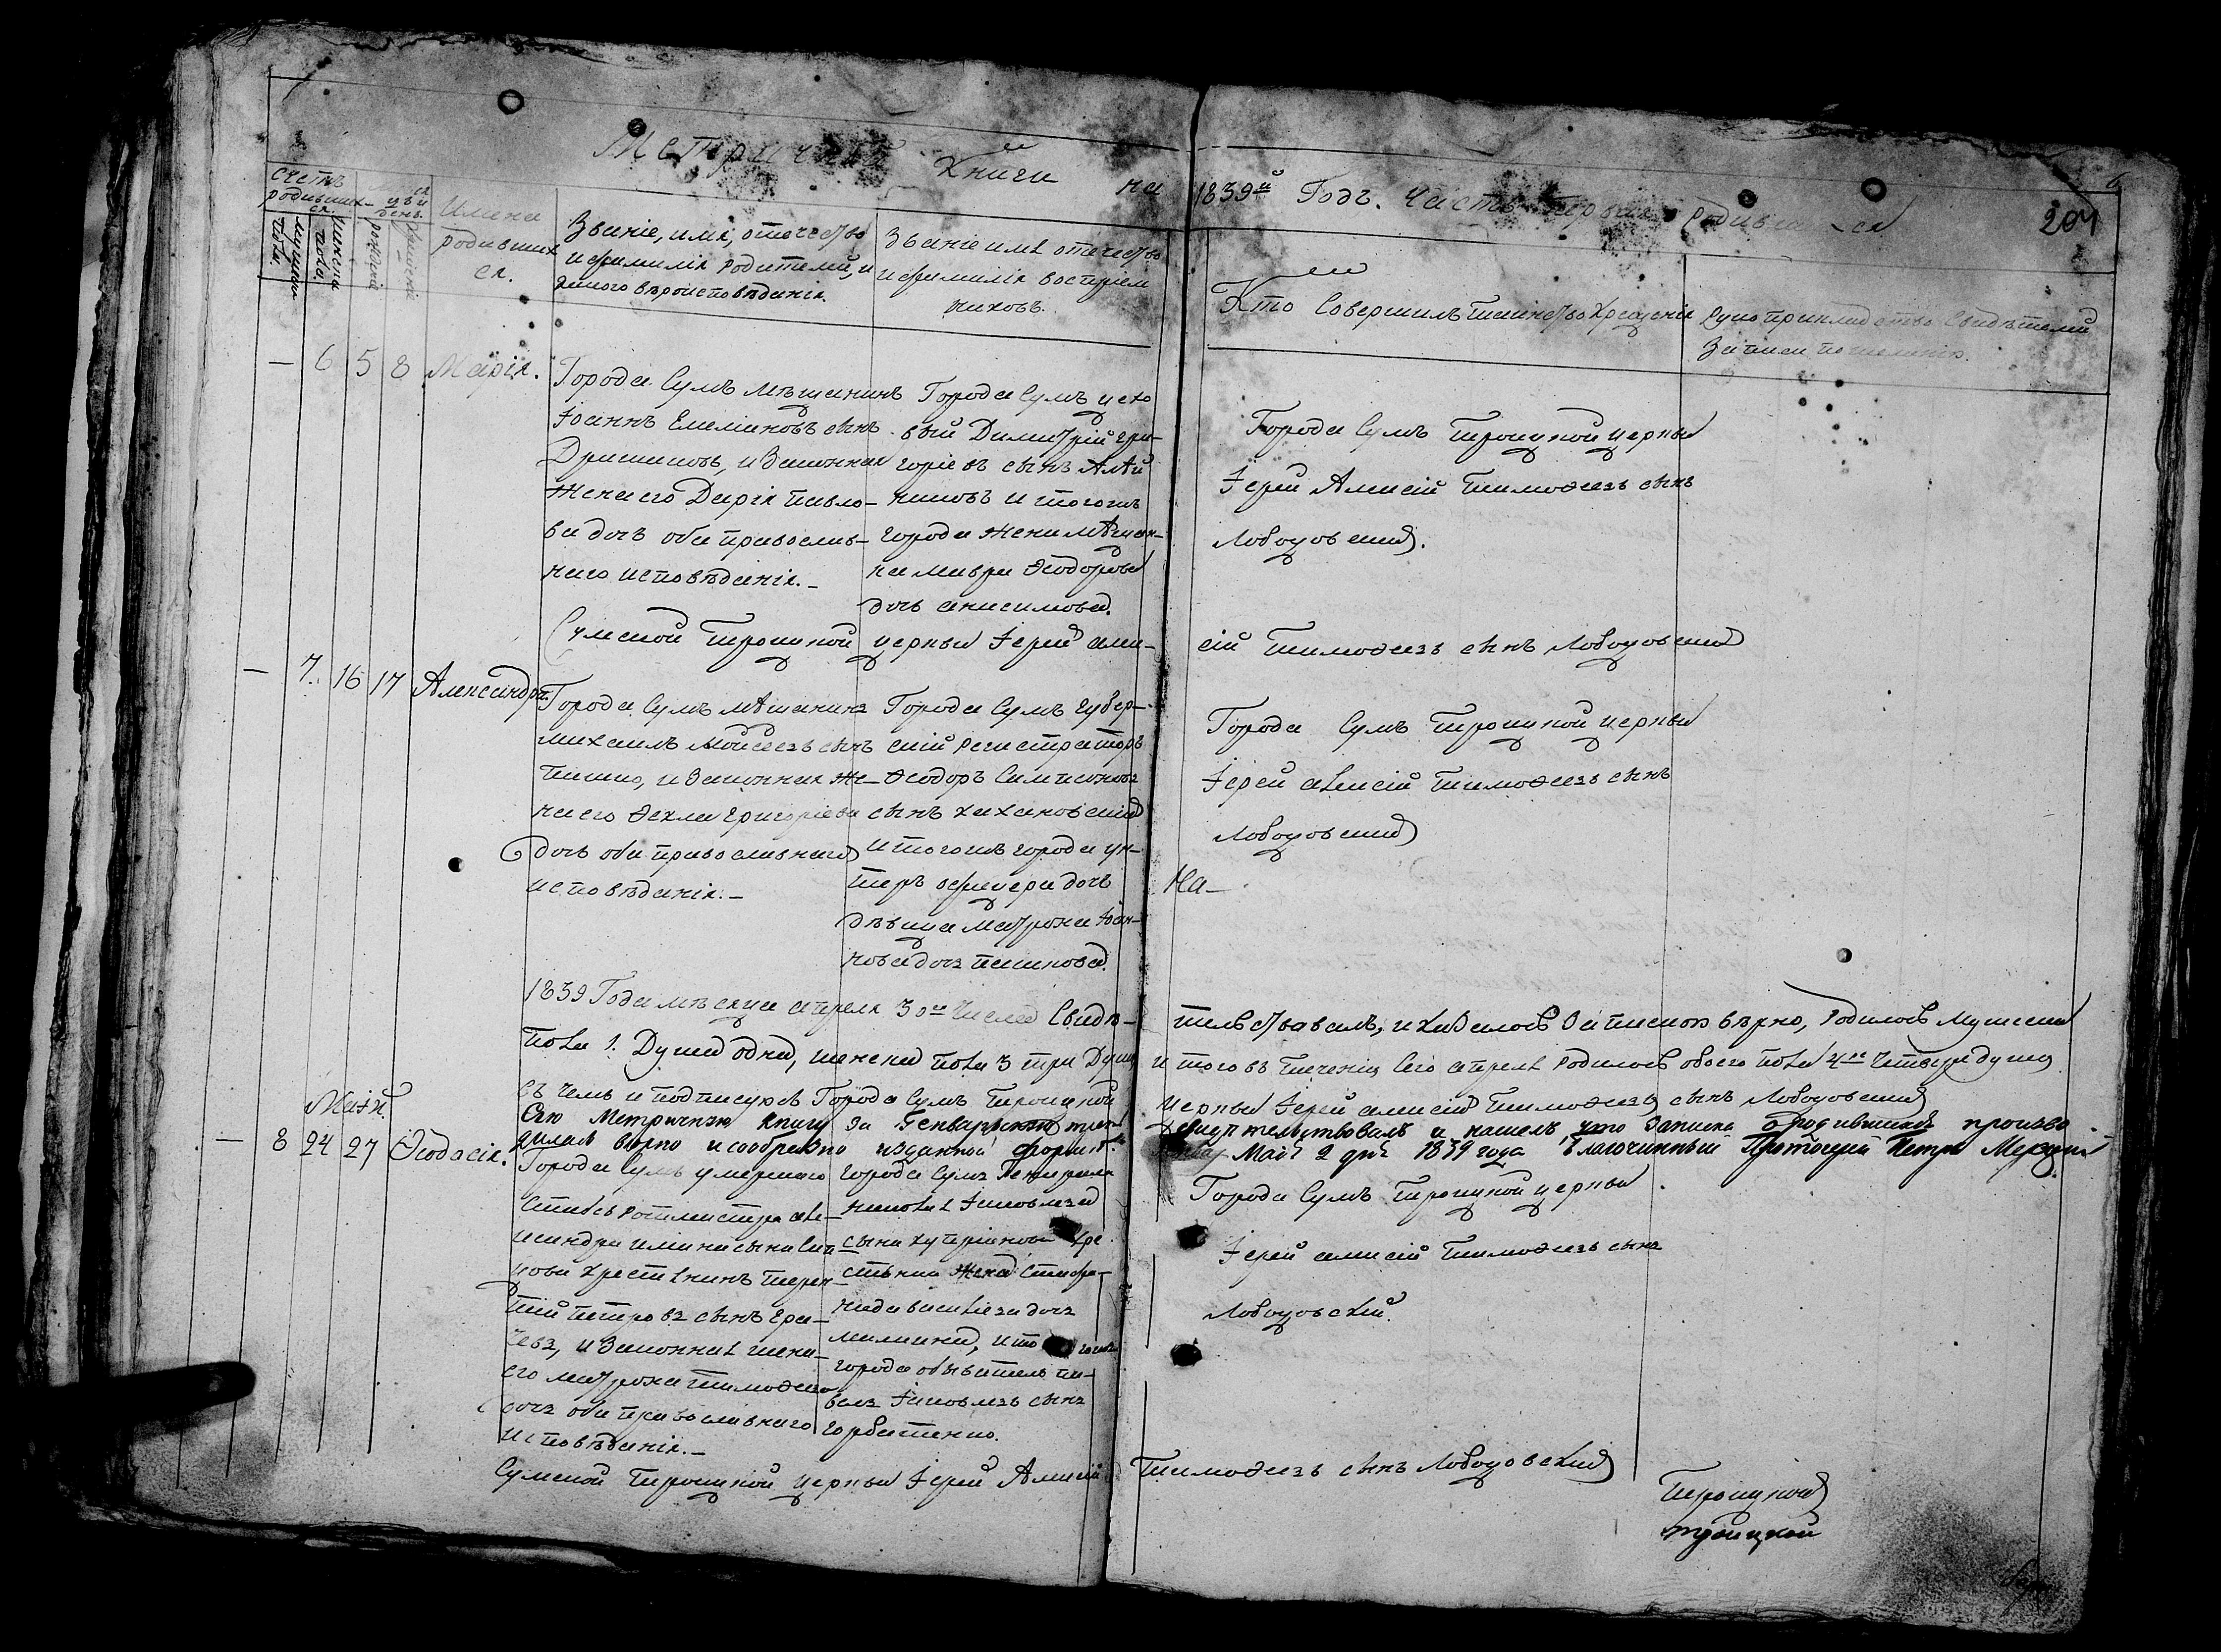 Метрической Книги на 1839й Годъ. Часть первая о родившихся
6
204
Счетъ родившихся
мужеска пола.
Женска пола.
день
рожденія
крещенія
Имена родившихся.
Званіе, имя, отечество
и фамилія родителей, и
какого вѣроисповѣданія.
Званіе имя отечество
и фамилія воспріем
никовъ.
Кто Совершилъ таинство Крещенія
Рукоприкладство Свидѣтелей
Записи по желанію.
— 6 5 8 Марія.
Города Сумъ мѣщанинъ
Іоаннъ Емеліановъ сынъ
и законная
жена его Дарія Павло-
ва дочь оба православ-
наго исповѣданія.—
Города Сумъ цехо
вый Димитрій Гри-
горіевъ сынъ
и тогожъ
города жена мѣщан-
ка Мавра Ѳеодорова
дочь Анисимова.
Города Сумъ Троицкой церкви
Іерей Алексій Тимоѳеевъ сынъ
Лобоцовскій.
Сумской Троицкой церкви Іерей Алек-
сій Тимоѳеевъ сынъ Лобоцовскій
— 7. 16 17 Александра.
Города Сумъ мѣщанинъ
Михаилъ Мойсеевъ сынъ
и законная же-
на его Ѳекла Григоріева
дочь оба православнаго
исповѣданія.—
Города Сумъ Губер-
скій регистраторъ
Ѳеодоръ Симисоновъ
сынъ Кахановскій
и тогожъ города ун-
теръ офицера дочь
дѣвица Матрона Іоан-
нова дочь
Города Сумъ Троицкой церкви
Іерей Алексій Тимоѳеевъ сынъ
Лобоцовскій
На-
1839 Года мѣсяца Апреля 30го Числа Свидѣ-
тельствавалъ, и казалось Записано вѣрно, Родилось Мужеска
пола 1. Душа одна, женска пола 3 три Души
и того въ теченіи сего апреля родилось обоего пола 4ре Четыре души
въ чемъ и подписуюсь Города Сумъ Троицкой
церкви Іерей Алексій Тимоѳеевъ сынъ Лобоцовскій
Сію Метрычную книгу за Генварскую треть
свидѣтельствовалъ и нашелъ, что записка о родившихся произво
дилась вѣрно и сообразно изданной формы.
Маія 2 дня 1839 года Благочинный Протоіерей Петръ
Маія.
— 8 24 27 Ѳеодосія.
Города Сумъ умершаго
Штабсъ ротмистра Але-
ксандра сына
крестянинъ Терен-
тій Петровъ сынъ Гра-
чевъ, и законная жена
его Матрона Тимоѳеева
дочь оба православнаго
исповѣданія.—
Города Сумъ Генерала
Іаковлева
сына Кре
стянка жена Стефа-
нида Василіева дочь
и то гожъ
города обыватель Па-
велъ Іаковлевъ сынъ
Горбатенко.
Города Сумъ Троицкой церкви
Іерей Алексій Тимоѳеевъ сынъ
Лобоцовскій.
Сумской Троицкой церкви Іерей Алексій
Тимоѳеевъ сынъ Лобоцовскій
Троицкой
троицкой